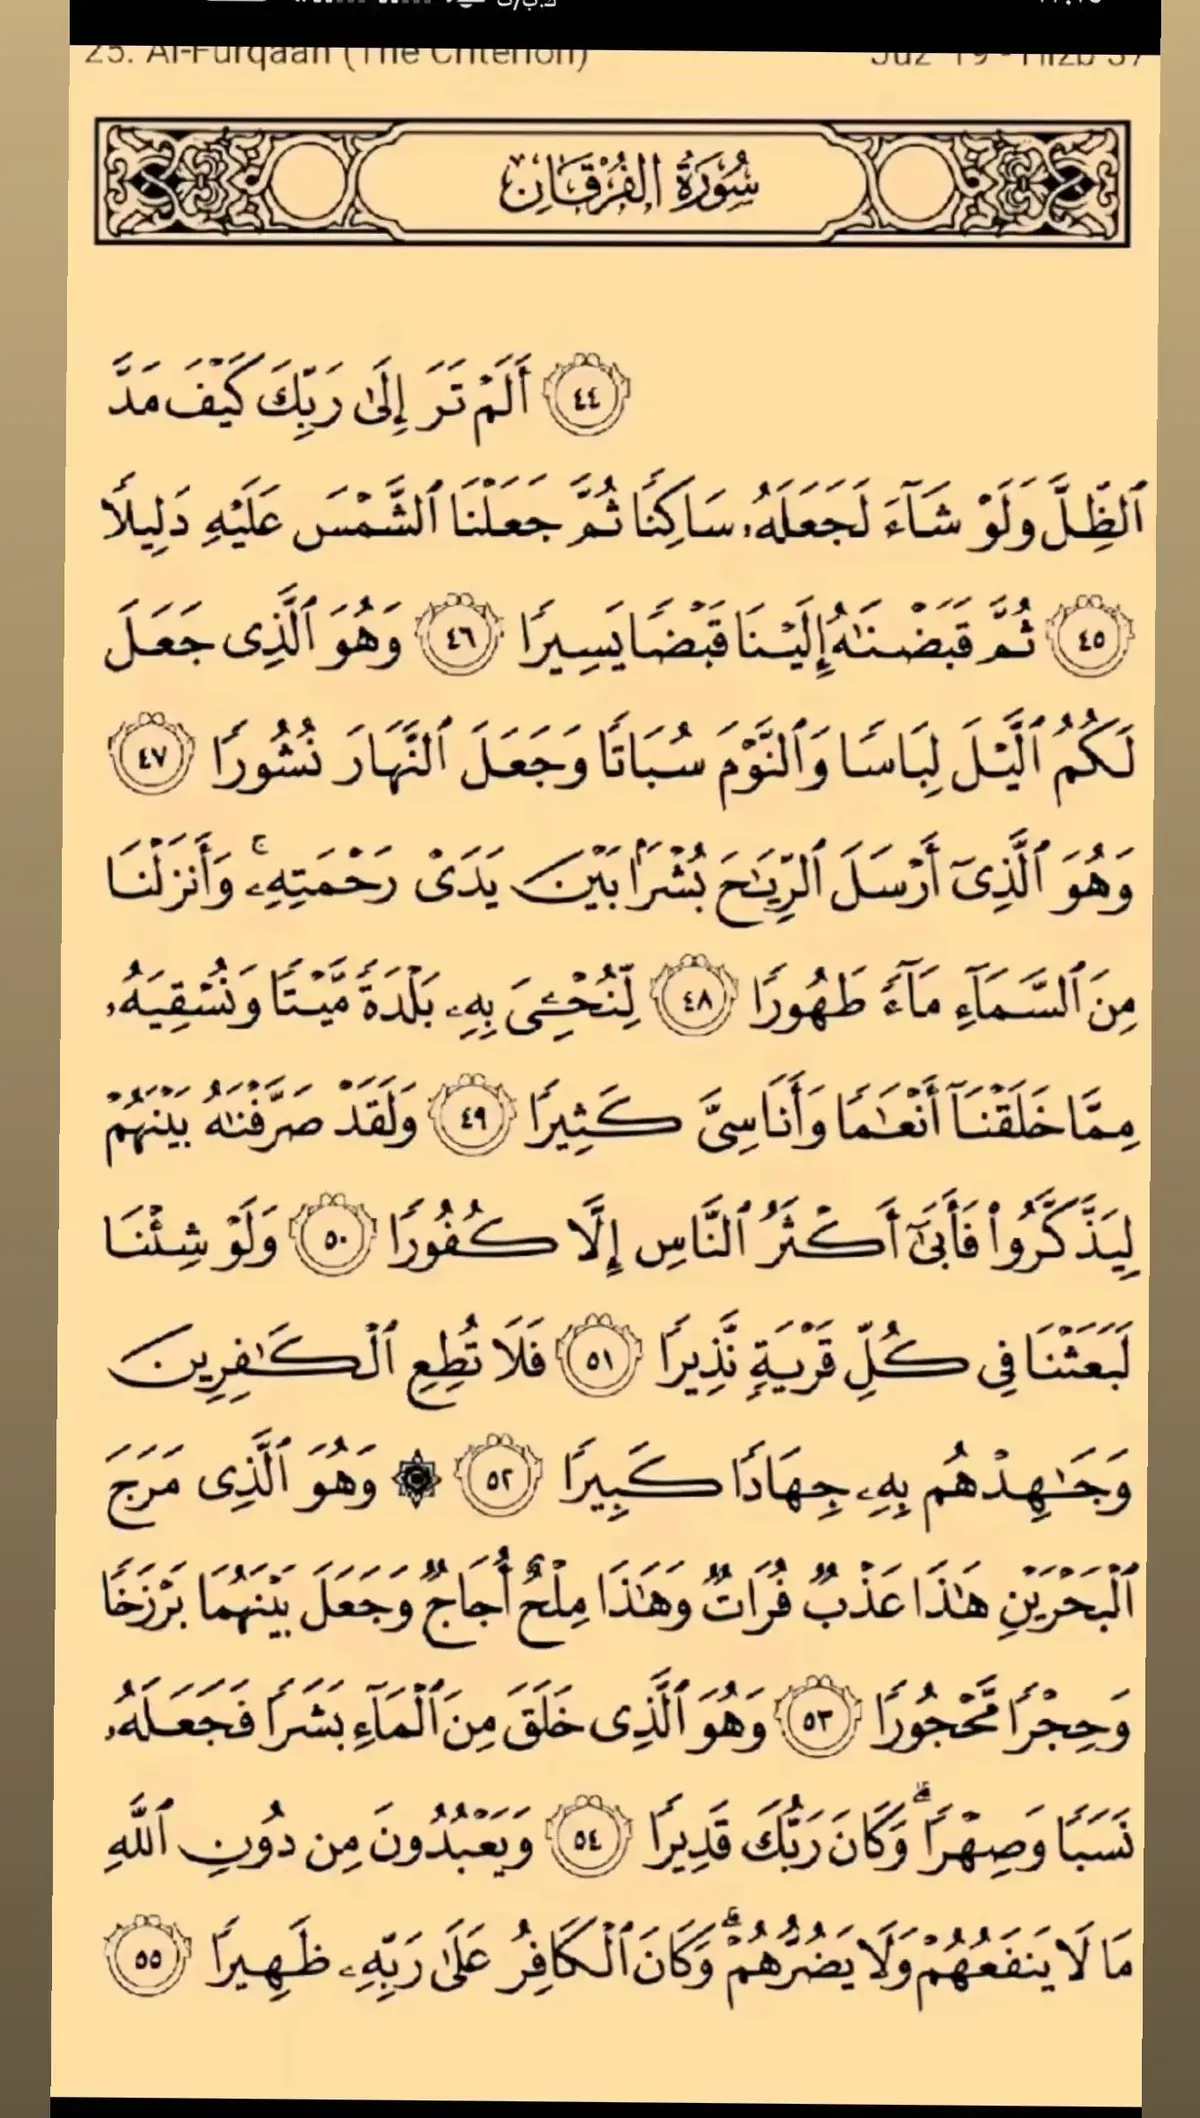 25. Al-Furqaan (The Criterion)
Juz' 19 - Hizb 37
سُورَةُ الفُرْقَانِ
٤٤ أَلَمْ تَرَ إِلَىٰ رَبِّكَ كَيْفَ مَدَّ
ٱلظِّلَّ وَلَوْ شَآءَ لَجَعَلَهُۥ سَاكِنًا ثُمَّ جَعَلْنَا ٱلشَّمْسَ عَلَيْهِ دَلِيلًا
٤٥ ثُمَّ قَبَضْنَٰهُ إِلَيْنَا قَبْضًا يَسِيرًا ٤٦ وَهُوَ ٱلَّذِى جَعَلَ
لَكُمُ ٱلَّيْلَ لِبَاسًا وَٱلنَّوْمَ سُبَاتًا وَجَعَلَ ٱلنَّهَارَ نُشُورًا ٤٧
وَهُوَ ٱلَّذِىٓ أَرْسَلَ ٱلرِّيَٰحَ بُشْرًۢا بَيْنَ يَدَىْ رَحْمَتِهِۦ ۚ وَأَنزَلْنَا
مِنَ ٱلسَّمَآءِ مَآءً طَهُورًا ٤٨ لِّنُحْۦِىَ بِهِۦ بَلْدَةً مَّيْتًا وَنُسْقِيَهُۥ
مِمَّا خَلَقْنَآ أَنْعَٰمًا وَأَنَاسِىَّ كَثِيرًا ٤٩ وَلَقَدْ صَرَّفْنَٰهُ بَيْنَهُمْ
لِيَذَّكَّرُوا۟ فَأَبَىٰٓ أَكْثَرُ ٱلنَّاسِ إِلَّا كُفُورًا ٥٠ وَلَوْ شِئْنَا
لَبَعَثْنَا فِى كُلِّ قَرْيَةٍ نَّذِيرًا ٥١ فَلَا تُطِعِ ٱلْكَٰفِرِينَ
وَجَٰهِدْهُم بِهِۦ جِهَادًا كَبِيرًا ٥٢ ۞ وَهُوَ ٱلَّذِى مَرَجَ
ٱلْبَحْرَيْنِ هَٰذَا عَذْبٌ فُرَاتٌ وَهَٰذَا مِلْحٌ أُجَاجٌ وَجَعَلَ بَيْنَهُمَا بَرْزَخًا
وَحِجْرًا مَّحْجُورًا ٥٣ وَهُوَ ٱلَّذِى خَلَقَ مِنَ ٱلْمَآءِ بَشَرًا فَجَعَلَهُۥ
نَسَبًا وَصِهْرًا ۗ وَكَانَ رَبُّكَ قَدِيرًا ٥٤ وَيَعْبُدُونَ مِن دُونِ ٱللَّهِ
مَا لَا يَنفَعُهُمْ وَلَا يَضُرُّهُمْ ۗ وَكَانَ ٱلْكَافِرُ عَلَىٰ رَبِّهِۦ ظَهِيرًا ٥٥